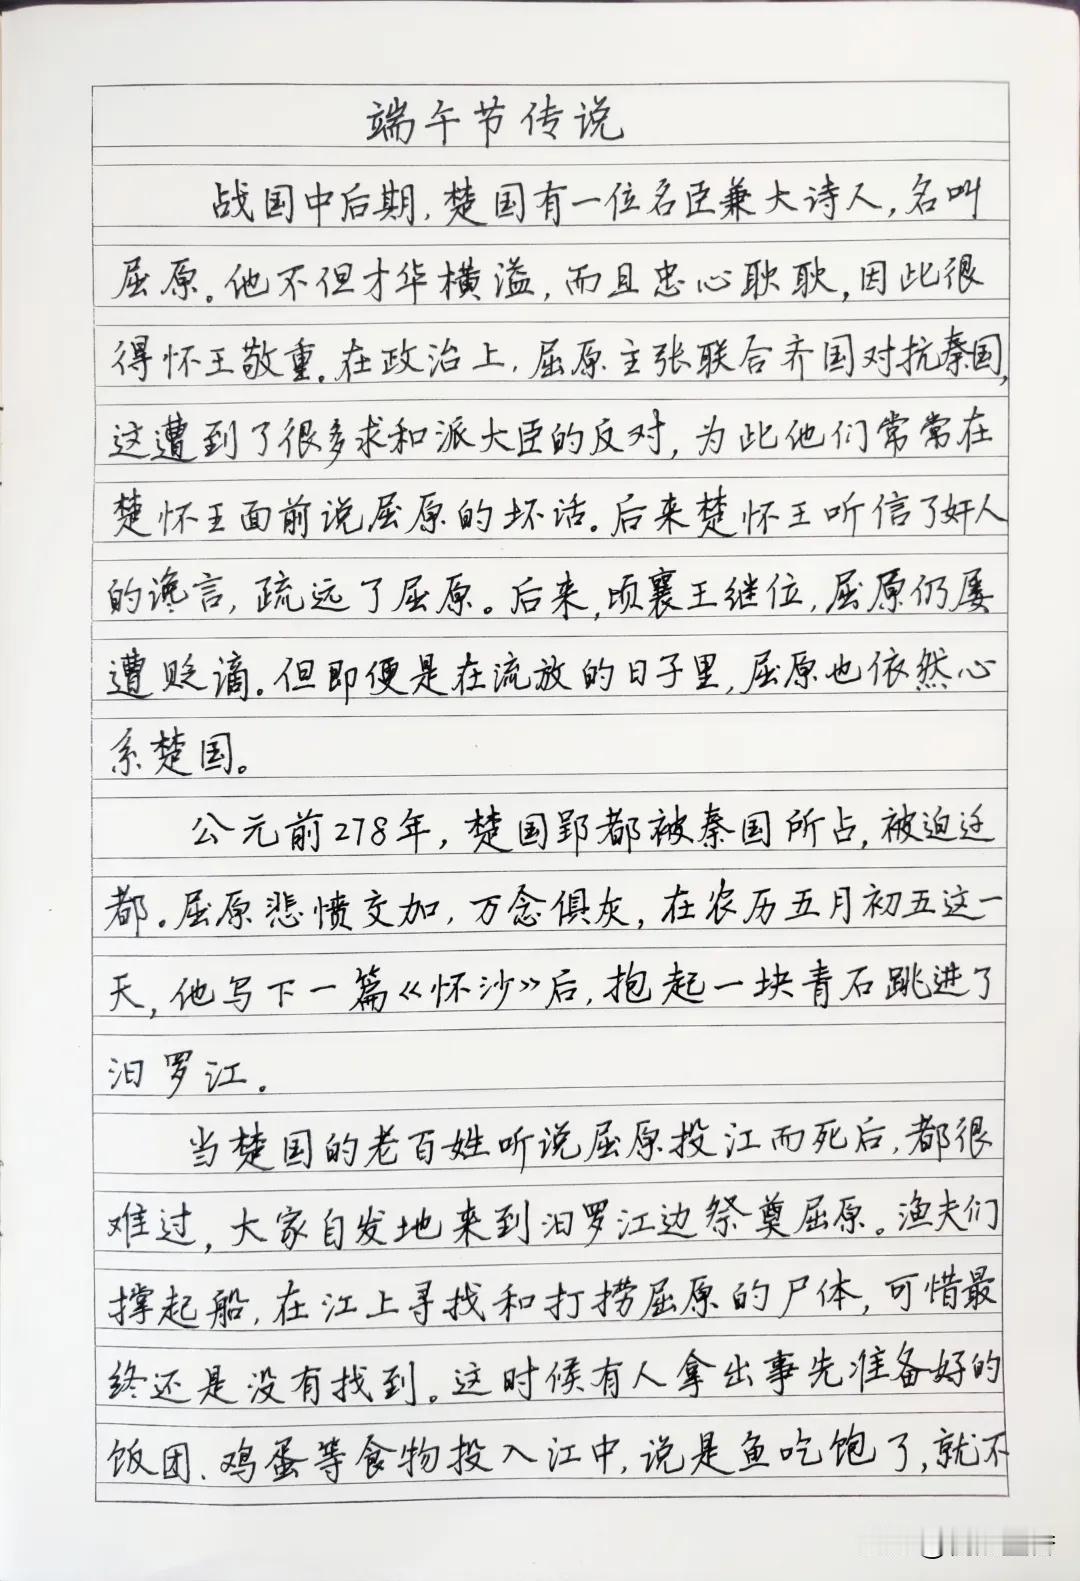 端午节传说
战国中后期,楚国有一位名臣兼大诗人,名叫
屈原。他不但才华横溢,而且忠心耿耿,因此很
得怀王敬重。在政治上,屈原主张联合齐国对抗秦国,
这遭到了很多求和派大臣的反对,为此他们常常在
楚怀王面前说屈原的坏话。后来楚怀王听信了奸人
的谗言,疏远了屈原。后来,顷襄王继位,屈原仍屡
遭贬谪。但即便是在流放的日子里,屈原也依然心
系楚国。
公元前278年,楚国郢都被秦国所占,被迫迁
都。屈原悲愤交加,万念俱灰,在农历五月初五这一
天,他写下一篇《怀沙》后,抱起一块青石跳进了
汨罗江。
当楚国的老百姓听说屈原投江而死后,都很
难过,大家自发地来到汨罗江边祭奠屈原。渔夫们
撑起船,在江上寻找和打捞屈原的尸体,可惜最
终还是没有找到。这时候有人拿出事先准备好的
饭团、鸡蛋等食物投入江中,说是鱼吃饱了,就不